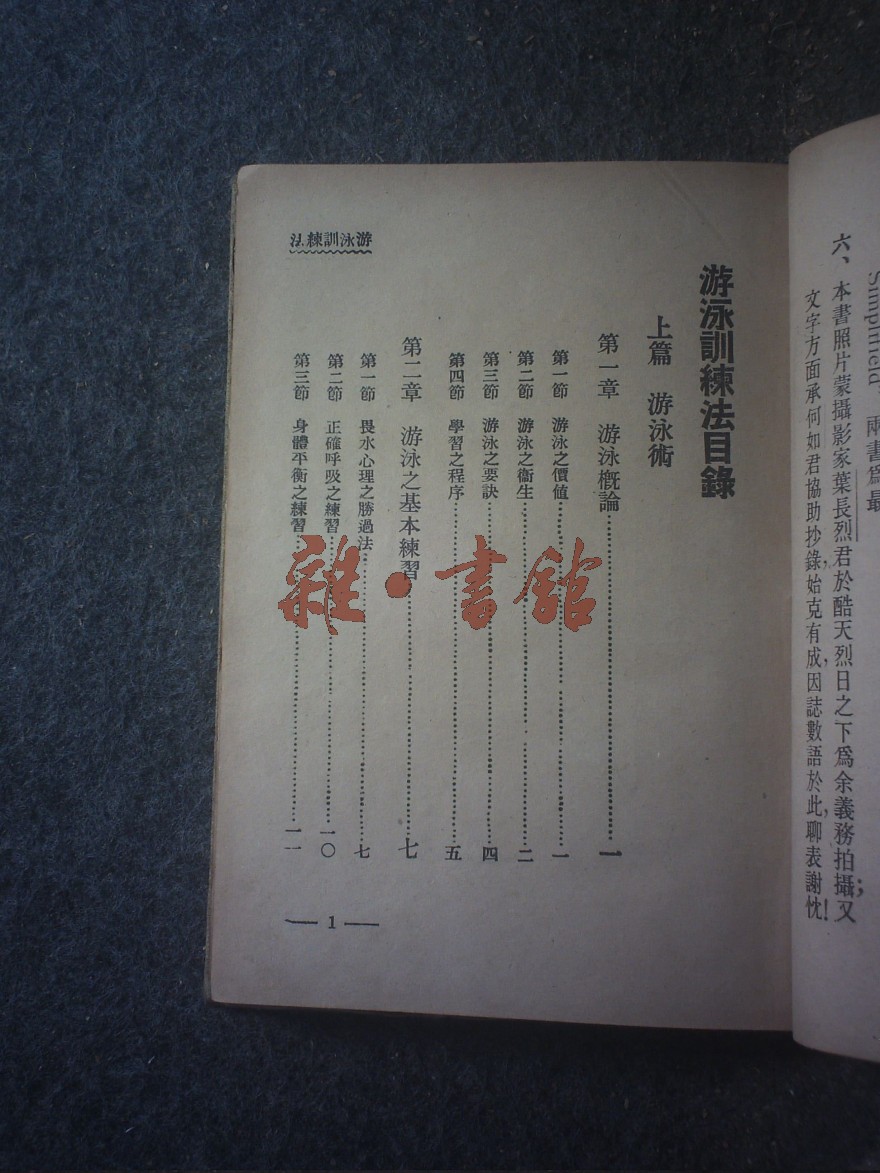 Simplifield, 兩書爲最
六、本書照片蒙攝影家葉長烈君於酷天烈日之下爲余義務拍攝；又
文字方面承何如君協助抄錄，始克有成，因誌數語於此，聊表謝忱！
游泳訓練法目錄
上篇 游泳術
第一章 游泳槪論…………一
第一節 游泳之價値…………一
第二節 游泳之衞生…………二
第三節 游泳之要訣…………四
第四節 學習之程序…………五
第二章 游泳之基本練習…………七
第一節 畏水心理之勝過法…………七
第二節 正確呼吸之練習…………一〇
第三節 身體平衡之練習…………一一
游泳訓練法
— 1 —
雜·書館